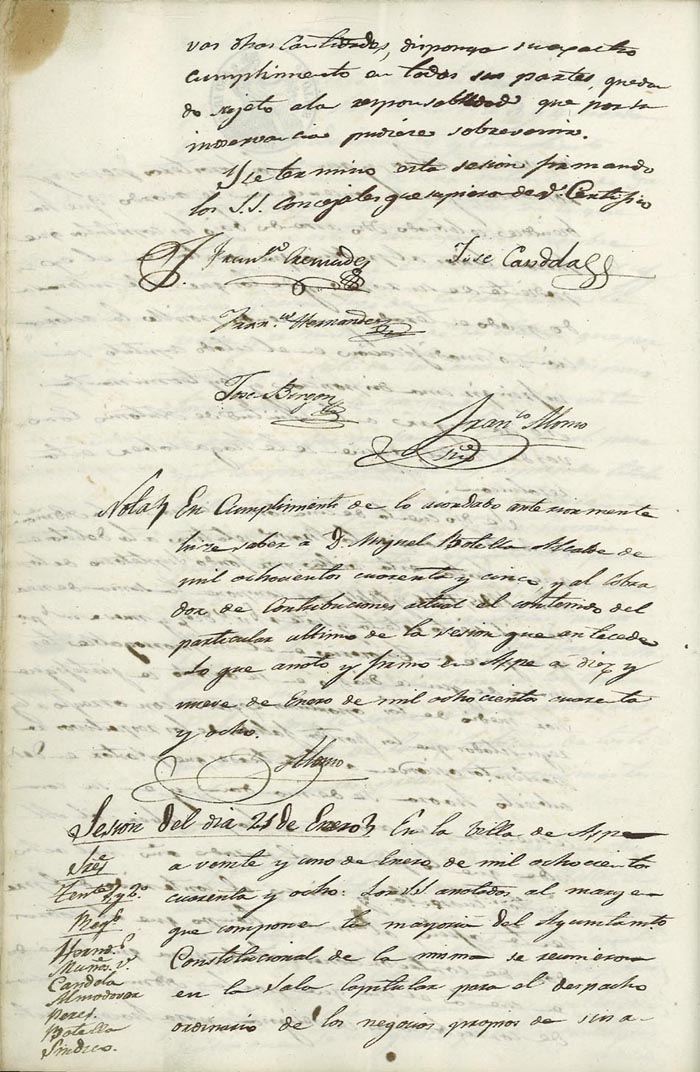 vas dhas Cantidades, disponga su exacto
cumplimento en todas sus partes, queda
do sujeto a la responsabilidad que por su
inobservancia pudiere sobrevenir.
Y se termino esta sesion firmando
los S.S. Concejales que supiero de q.e Certifico
Fran.co Cremades
Jose Candela
Fran.co Hernandez
Jose
Fran.co Alonso
Srio
Nota En Cumplimiento de lo acordado anteriormente
hize saber a D. Miguel Botella Alcalde de
mil ochocientos cuarenta y cinco y al Cobra
dor de Contribuciones actual el contenido del
particular ultimo de la sesion que antecede
Lo que anoto y firmo en Aspe a diez y
nueve de Enero de mil ochocientos cuarenta
y ocho.
Alonso
Sesion del dia 21 de Enero En la Villa de Aspe
a veinte y uno de Enero de mil ochociento
cuarenta y ocho: Los SS anotados al margen
que componen la mayoria del Ayuntam.to
Constitucional de la misma se reunieron
en la Sala Capitular para el despacho
ordinario de los negocios propios de sus a-
Sres
Tente 1 y 2o.
Reg.s
Herne.
Muñoz V.
Candela
Almodovar
Peres.
Botella
Sindico.